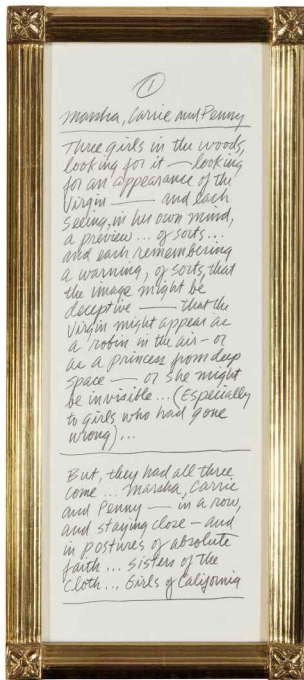 1
Marsha, Carrie and Penny
Three girls in the woods,
looking for it — looking
for an appearance of the
Virgin — and each
seeing, in her own mind,
a preview... of sorts...
and each remembering
a warning, of sorts, that
the image might be
deceptive — that the
Virgin might appear as
a robin in the air — or
as a princess from deep
space — or she might
be invisible... (Especially
to girls who had gone
wrong)...
But, they had all three
come... Marsha, Carrie
and Penny — in a row,
and staying close — and
in postures of absolute
faith... Sisters of the
Cloth... Girls of California